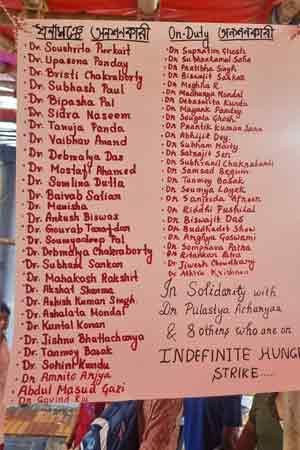 ধর্মমঞ্চে অনশনকারী
Dr. Soushrita Purkait
Dr. Upasona Panday
Dr. Bristi Chakraborty
Dr. Subhash Paul
Dr. Bipasha Pal
Dr. Sidra Naseem
Dr. Tanuja Panda
Dr. Vaibhav Anand
Dr. Debmalya Das
Dr. Mostafi Ahamed
Dr. Somlina Dutta
Dr. Baivab
Dr. Manisha
Dr. Ankush Biswas
Dr. Gourab
Dr. Soumyadeep Pal
Dr. Debmalya Chakraborty
Dr. Subham Sarkar
Dr. Mahakash Rakshit
Dr. Akshat Sharma
Dr. Ashish Kumar Singh
Dr. Ashalata Mondal
Dr. Kuntal Konar
Dr. Jishnu Bhattacharya
Dr. Tanmoy Basak
Dr. Sohini Kundu
Dr. Amrita Ariya
Abdul Masud Gazi
Dr. Govind Rai
On-Duty অনশনকারী
Dr. Supratim Ghosh
Dr. Subhankamal Saha
Dr. Pratibha Singh
Dr. Biswajit Sarkar
Dr. Megha R.
Dr. Madhuparna Nandi
Dr. Debasmita Kundu
Dr. Mayank Pandey
Dr. Sougata Ghosh
Dr. Prantik Kumar Sana
Dr. Abhijit Dey
Dr. Subham Maity
Dr. Satrajit Sen
Dr. Subhranil Chakrabarti
Dr. Samsad Begum
Dr. Tanmoy Basak
Dr. Soumya Layek
Dr. Sanjeeda Afroen
Dr. Riddhi Pushilal
Dr. Biswajit Das
Dr. Buddhadeb Show
Dr. Arghya Goswami
Dr. Somprava Patra
Dr. Ritankar Patra
Dr. Jiwesh Chowdhary
Dr. Athira Krishnan
In Solidarity with
Dr Pulastya Acharyaa
& 8 others who are on
INDEFINITE HUNG
STRIKE.....